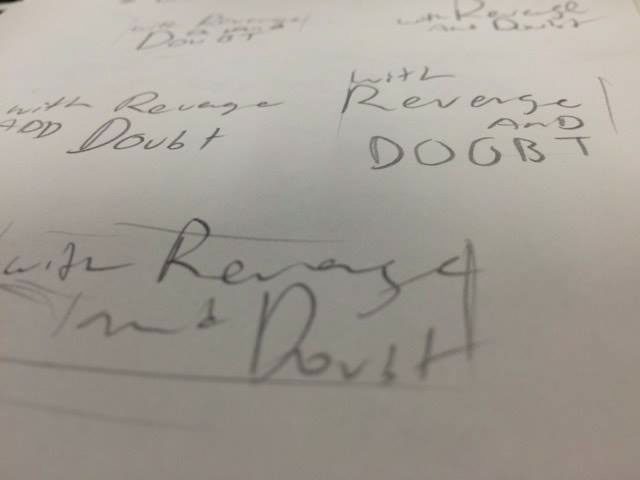 with Revenge
DOUBT
with Revenge
And Doubt
with Revenge
ADD Doubt
with
Revenge
AND
DOOBT
with Revenge
and Doubt